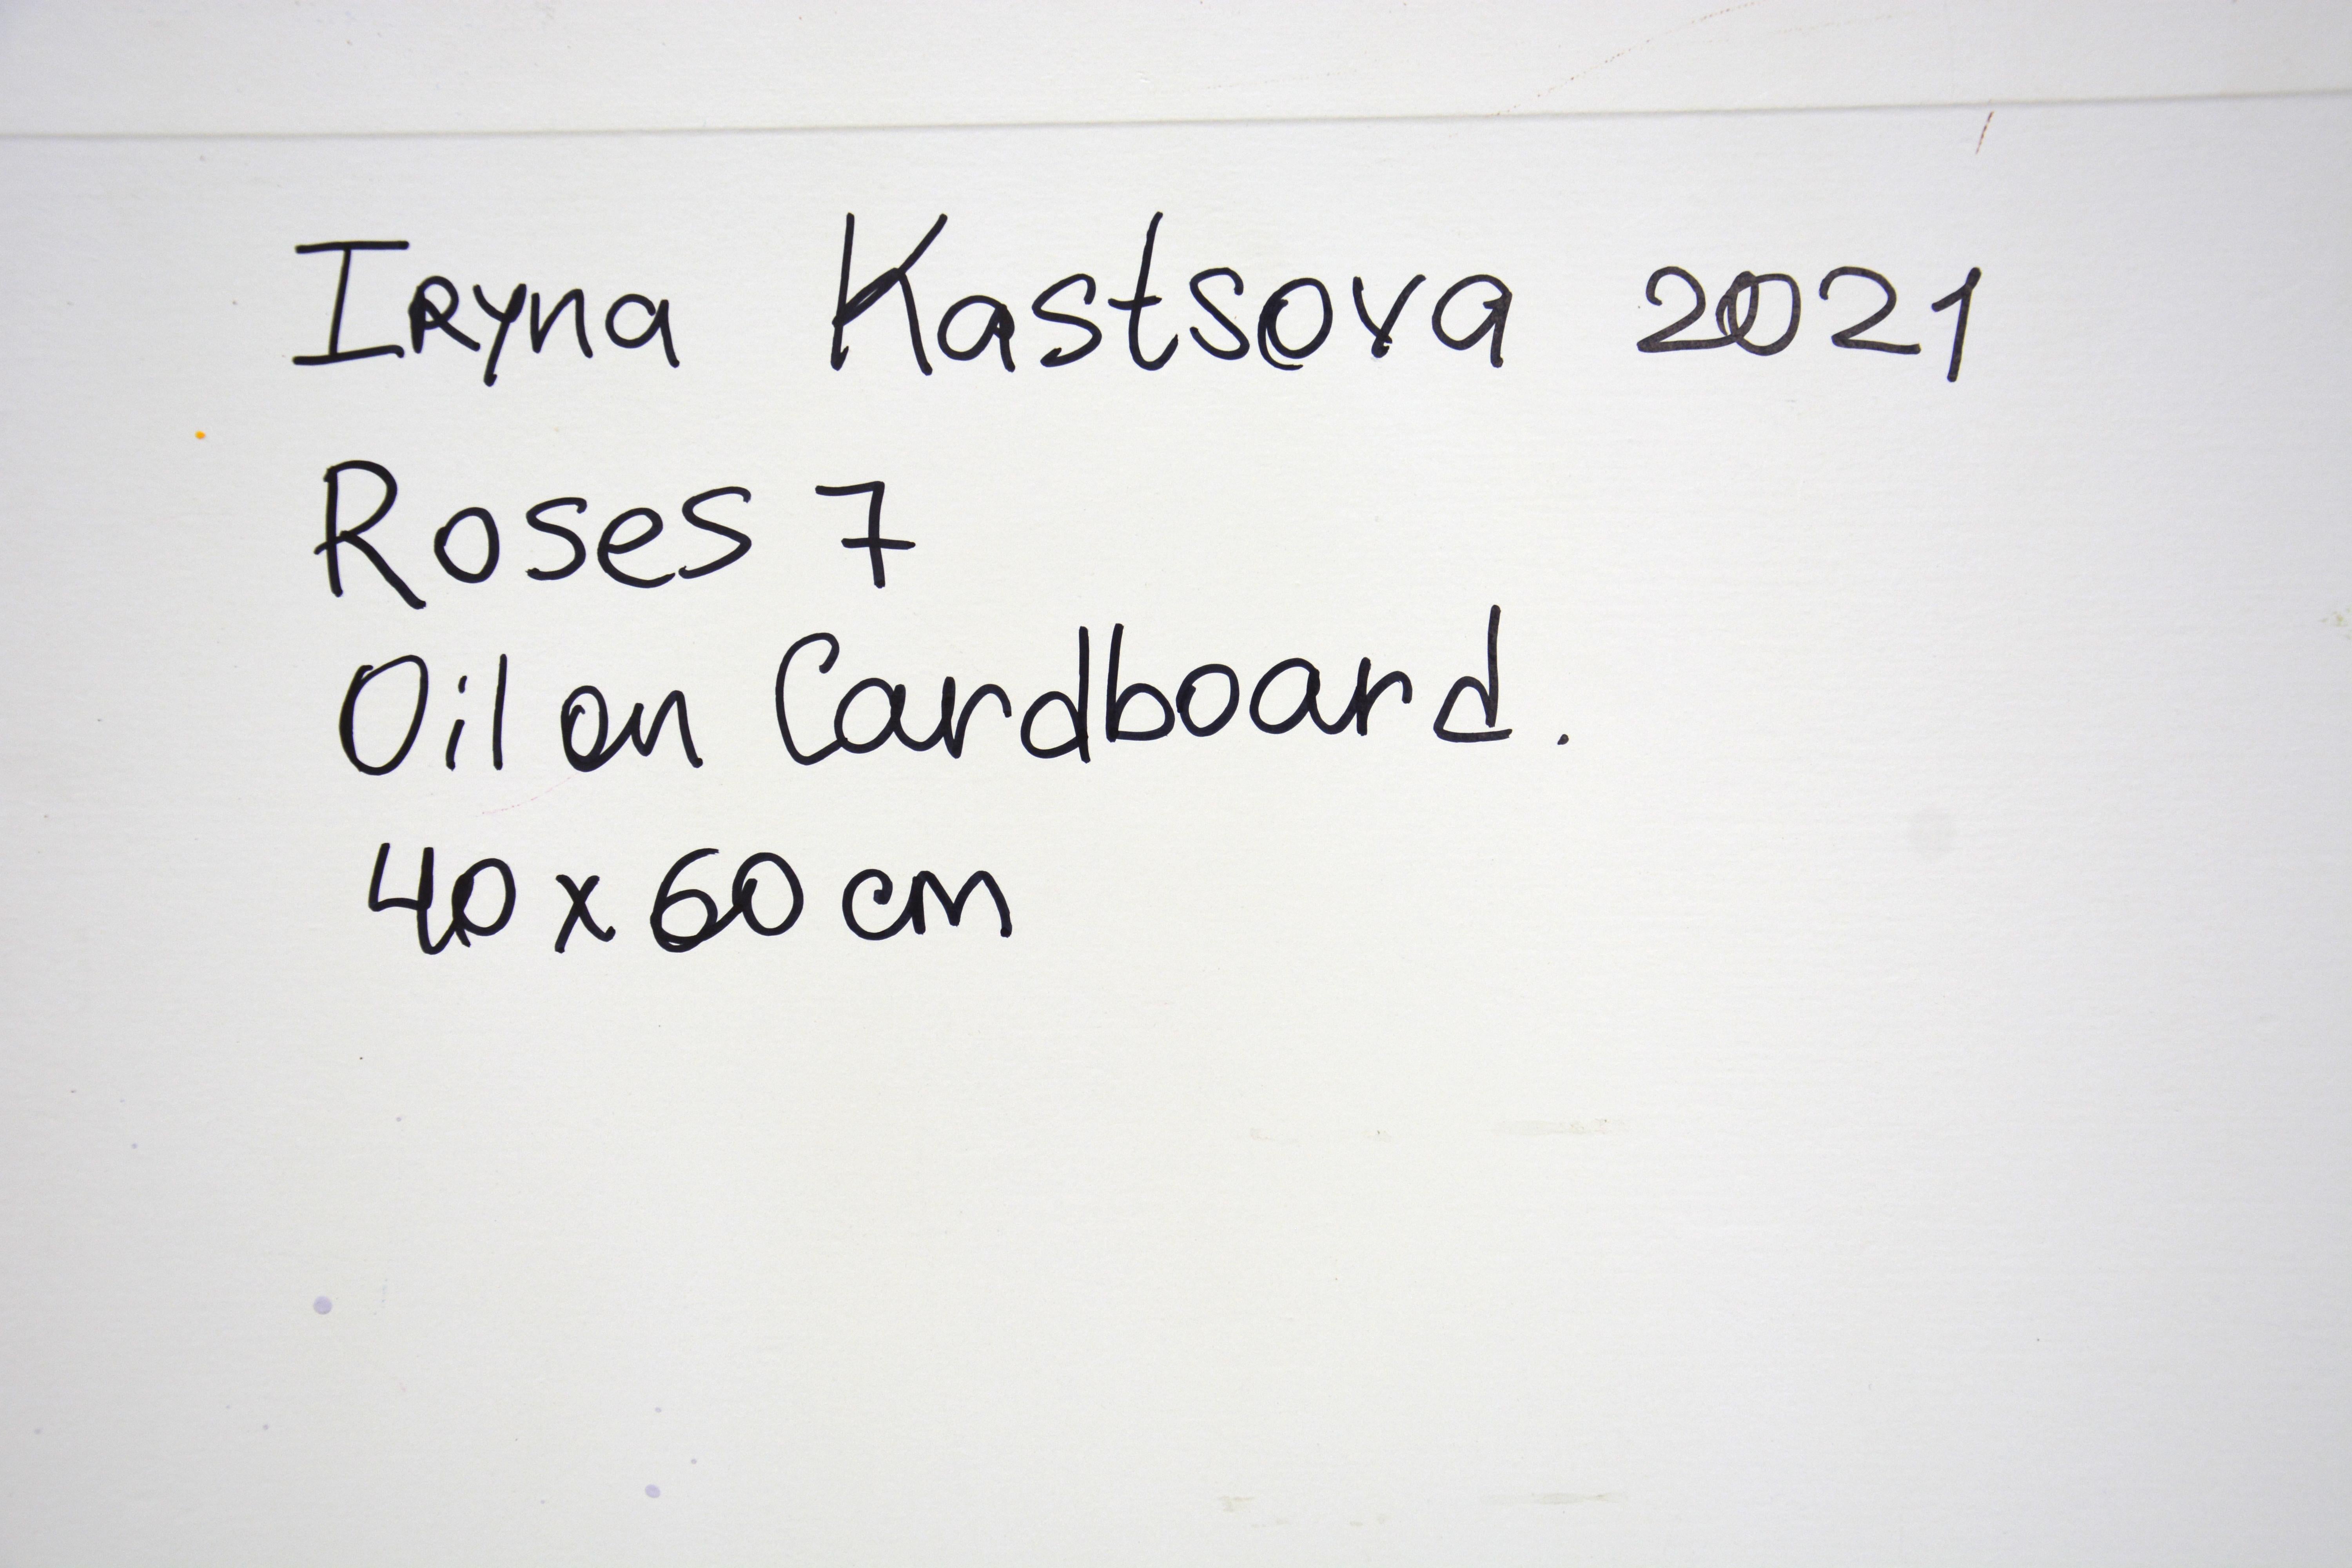 Iryna Kastsova 2021
Roses 7
Oil on Cardboard.
40 x 60 cm